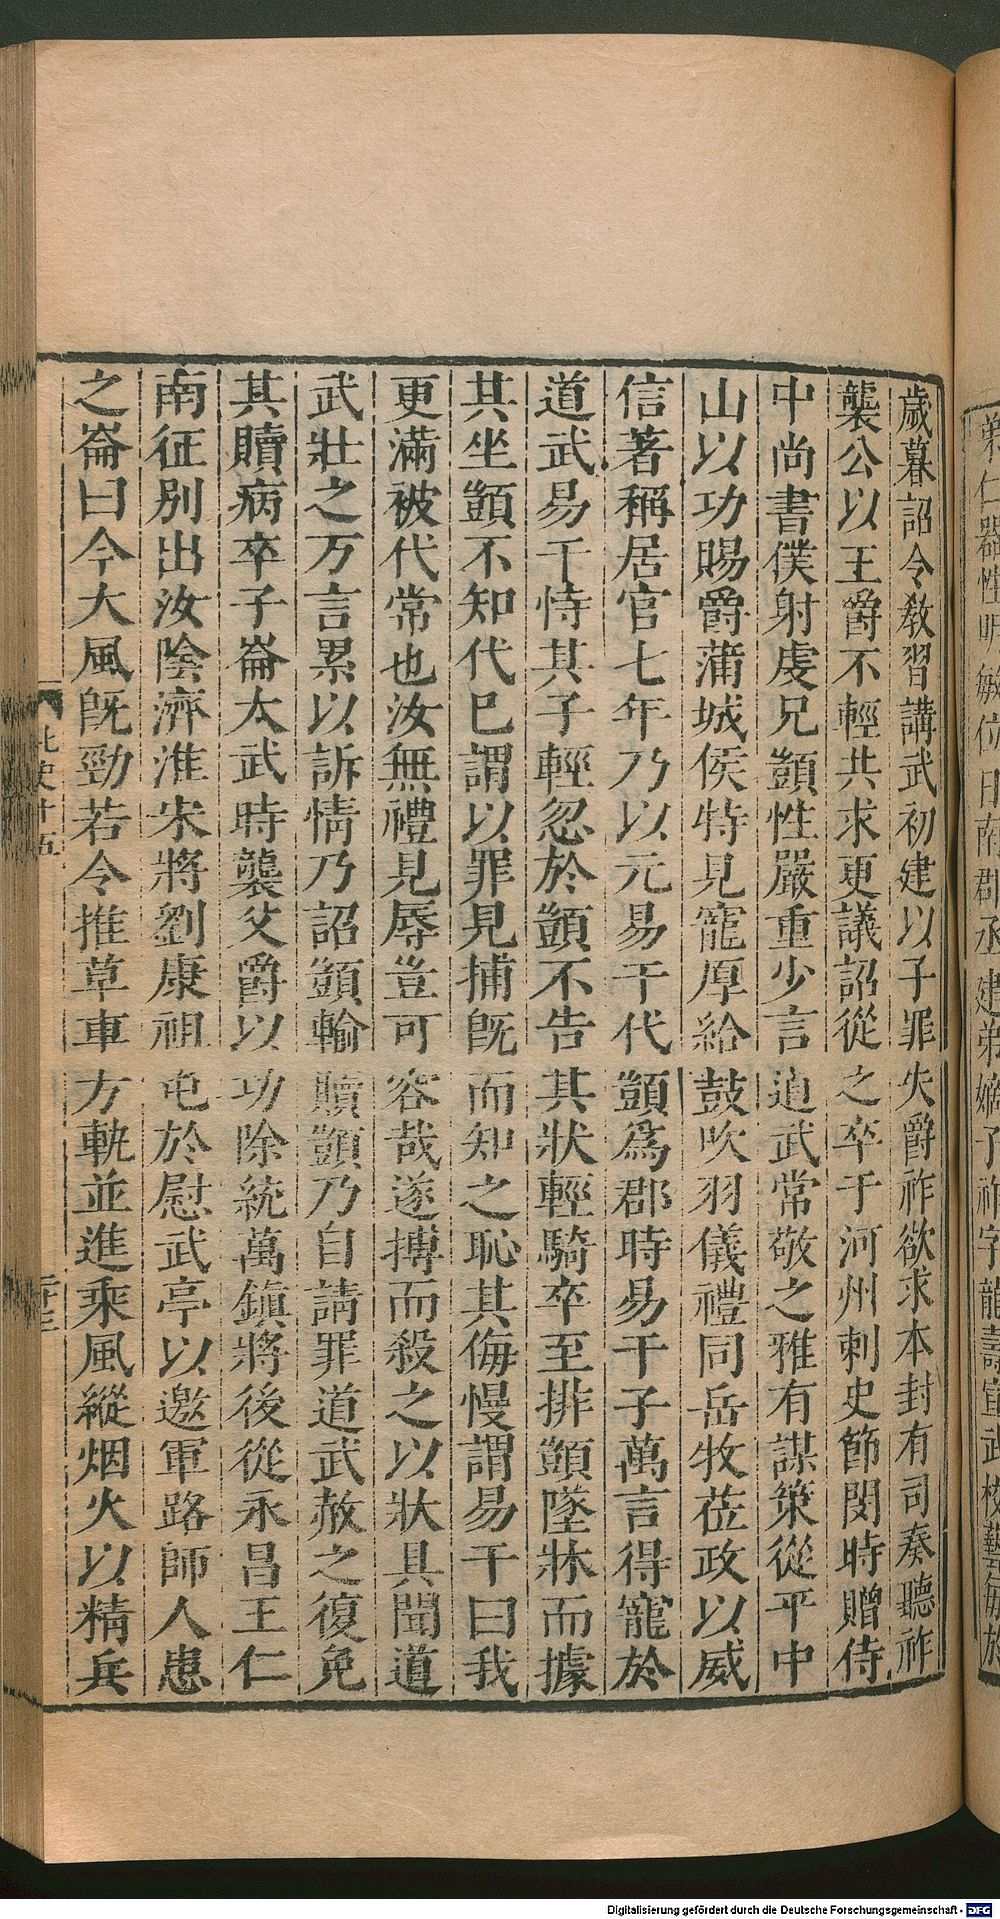 歲暮詔令敎習講武初建以子罪失爵祚欲求本封有司奏聽祚
襲公以王爵不輕共求更議詔從之卒于河州刺史節閔時贈侍
中尚書僕射虔兄顗性嚴重少言道武常敬之雅有謀策從平中
山以功賜爵蒲城侯特見寵厚給鼓吹羽儀禮同岳牧莅政以威
信著稱居官七年乃以元易干代顗爲郡時易干子萬言得寵於
道武易干恃其子輕忽於顗不告其狀輕騎卒至排顗墜牀而據
其坐顗不知代巳謂以罪見捕旣而知之恥其侮慢謂易干曰我
更滿被代常也汝無禮見辱豈可容哉遂搏而殺之以狀具聞道
武壯之万言累以訴情乃詔顗輸贖顗乃自請罪道武赦之復免
其贖病卒子崙太武時襲父爵以功除統萬鎭將後從永昌王仁
南征別出汝陰濟淮宋將劉康祖屯於慰武亭以邀軍路師人患
之崙曰今大風旣勁若令推草車方軌並進乘風縱烟火以精兵
北史十五
慕仁器性明敏位日南郡丞建弟嫡子祚字龍壽宣武校藝每於
Digitalisierung gefördert durch die Deutsche Forschungsgemeinschaft - DFG